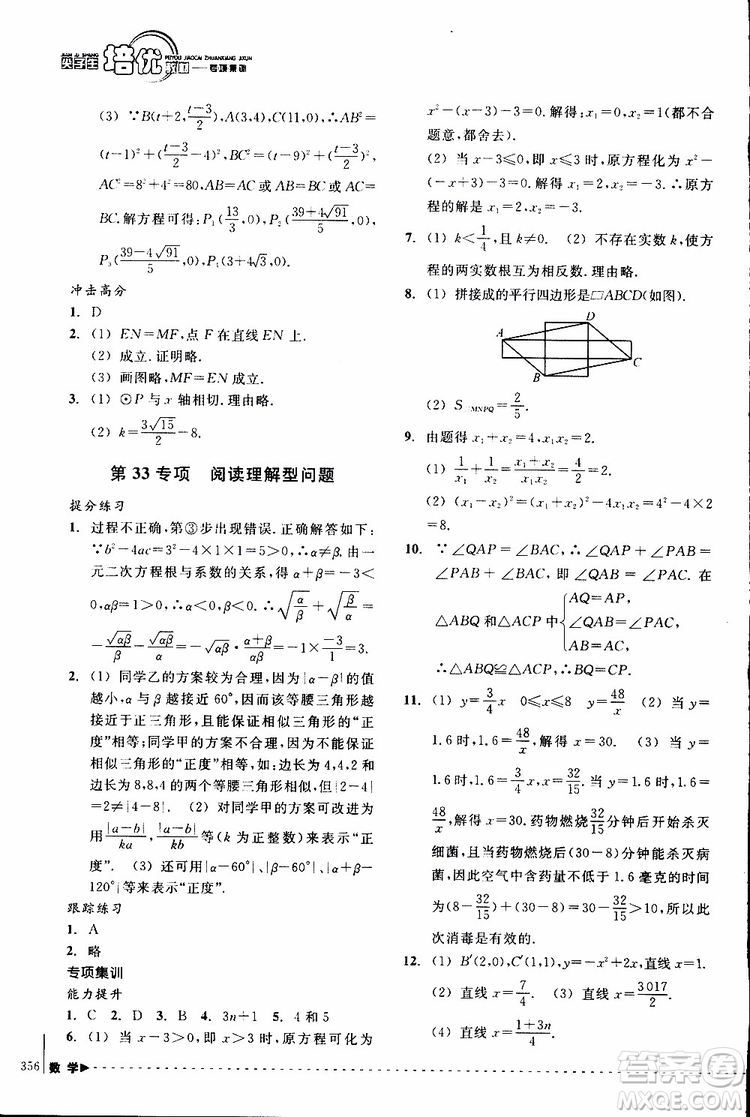 尖子生 培优 教材——专项集训
JIAN ZI SHENG
PEIYOU JIAOCAI ZHUANXIANG JIXUN
(3) ∵B(t+2, (t-3)/2), A(3,4), C(11,0), ∴AB²=
(t-1)²+((t-3)/2-4)², BC²=(t-9)²+((t-3)/2)²,
AC²=8²+4². ∴AB=AC或AB=BC或AC=
BC. 解方程可得: P₁(13/3,0), P₂((39+4√91)/5,0),
P₃((39-4√91)/5,0), P₄(3+4√5,0).
冲击高分
1. D
2. (1) EN=MF, 点F在直线EN上.
(2) 成立. 证明略.
(3) 画图略, MF=EN成立.
3. (1) ⊙P与x轴相切. 理由略.
(2) k=3√15/2-8.
第33专项 阅读理解型问题
提分练习
1. 过程不正确, 第③步出现错误. 正解如下:
∵b²-4ac=3²-4×1×1=5>0, ∴α≠β. 由一
元二次方程根与系数的关系, 得α+β=-3<
0, αβ=1>0, ∴α<0, β<0. ∴√(α/β)+√(β/α)=
-√(αβ)/β-√(αβ)/α=-√(αβ)·(α+β)/(αβ)=-1×(-3)/1=3.
2. (1) 同学乙的方案较为合理. 因为|α-β|的值
越小, α与β越接近60°, 因而该等腰三角形越
接近于正三角形, 且能保证相似三角形的“正
度”相等; 同学甲的方案不合理, 不能保证相似
三角形的“正度”相等. 如: 边长为4,4,2和边长
为8,8,4的两个等腰三角形相似, 但|2-4|=
2≠|4-8|=4. (2) 对同学甲的方案可改进为
用|a-b|/ka, |a-b|/kb等(k为正整数)来描述“正
度”. (3) 还可用|α-60°|, |β-60°|, |α+β-
120°|等来描述“正度”.
跟踪练习
1. A
2. 略
专项集训
能力提升
1. C 2. D 3. B 4. 3n+1 5. 4和5
6. (1) 当x-3>0, 即x>3时, 原方程可化为
x²-(x-3)-3=0. 解得: x₁=0, x₂=1(都不合
题意, 都舍去).
(2) 当x-3≤0, 即x≤3时, 原方程化为x²-
(-x+3)-3=0. 解得: x₁=2, x₂=-3. ∴原方
程的解是x=2或x=-3.
7. (1) k<1/4, 且k≠0. (2) 不存在实数k, 使方
程的两实数根互为相反数. 理由略.
8. (1) 拼接成的平行四边形是▱ABCD(如图).
D
A
B
C
(2) S MNPQ=2/5.
9. 由题得x₁+x₂=4, x₁·x₂=2.
(1) 1/x₁+1/x₂=(x₁+x₂)/(x₁x₂)=4/2=2.
(2) (x₁-x₂)²=(x₁+x₂)²-4x₁x₂=4²-4×2
=8.
10. ∵∠QAP=∠BAC, ∴∠QAP+∠PAB=
∠PAB+∠BAC, 即∠QAB=∠PAC. 在
△ABQ和△ACP中{AQ=AP, ∠QAB=∠PAC, AB=AC,
∴△ABQ≌△ACP, ∴BQ=CP.
11. (1) y=3/4x 0≤x≤8 y=48/x (2) 当y=
1.6时, 1.6=48/x, 解得x=30. (3) 当y=
1.6时, 1.6=3/4x, 解得x=32/15; 当y=1.6时, 1.6=
48/x, 解得x=30. 药物燃烧32/15分钟后开始杀灭
细菌, 且当药物燃烧后(30-8)分钟, 杀灭病
菌, 因此空气中含药量不低于1.6毫克的时间
为(8-32/15)+(30-8)=30-32/15>10, 所以此
次消毒是有效的.
12. (1) B′(2,0), C′(1,1), y=-x²+2x, 直线x=1.
(2) 直线x=7/4. (3) 直线x=3017/2.
(4) 直线x=(1+3n)/4.
356 数学
作业精灵